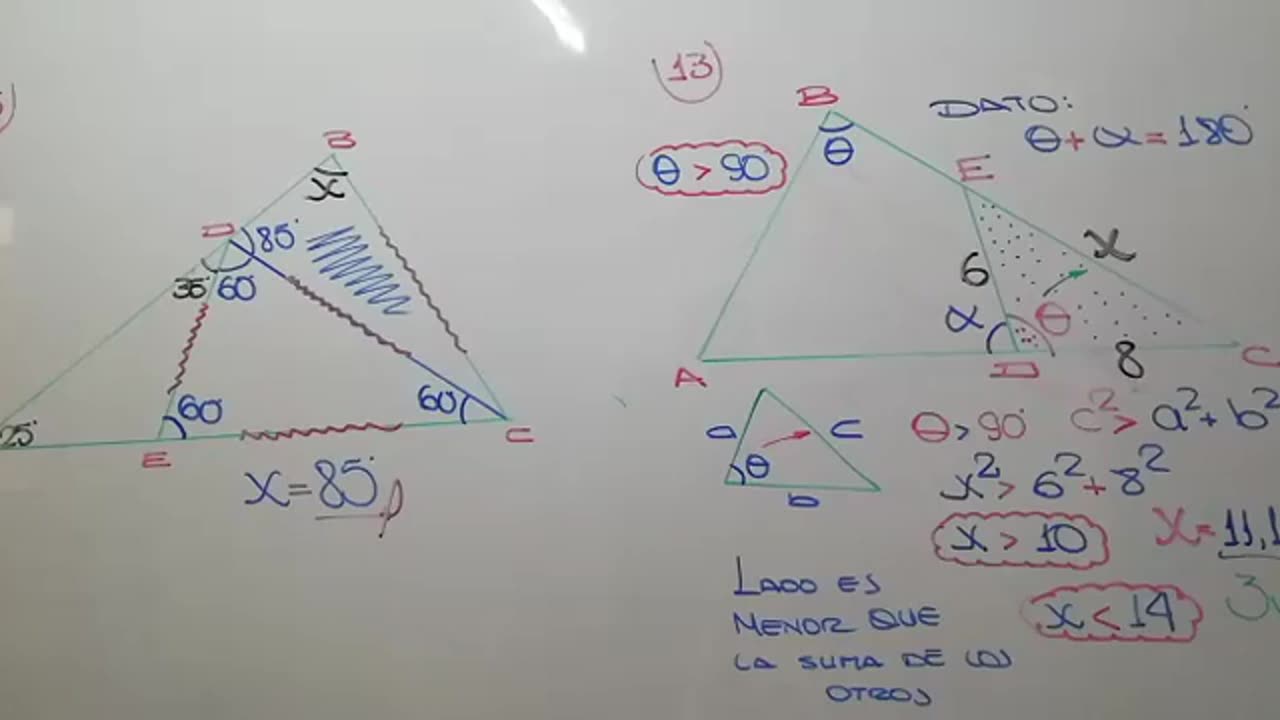 B
x
D
85°
35° 60°
60
60
25°
E
C
x = 85°
13
B
θ > 90
θ
DATO:
θ + α = 180°
E
x
6
α
θ
8
A
D
C
a
c
θ
b
θ > 90° c² > a² + b²
x² > 6² + 8²
x > 10
x = 11,1
LADO ES
MENOR QUE
LA SUMA DE LOS
OTROS
x < 14
3